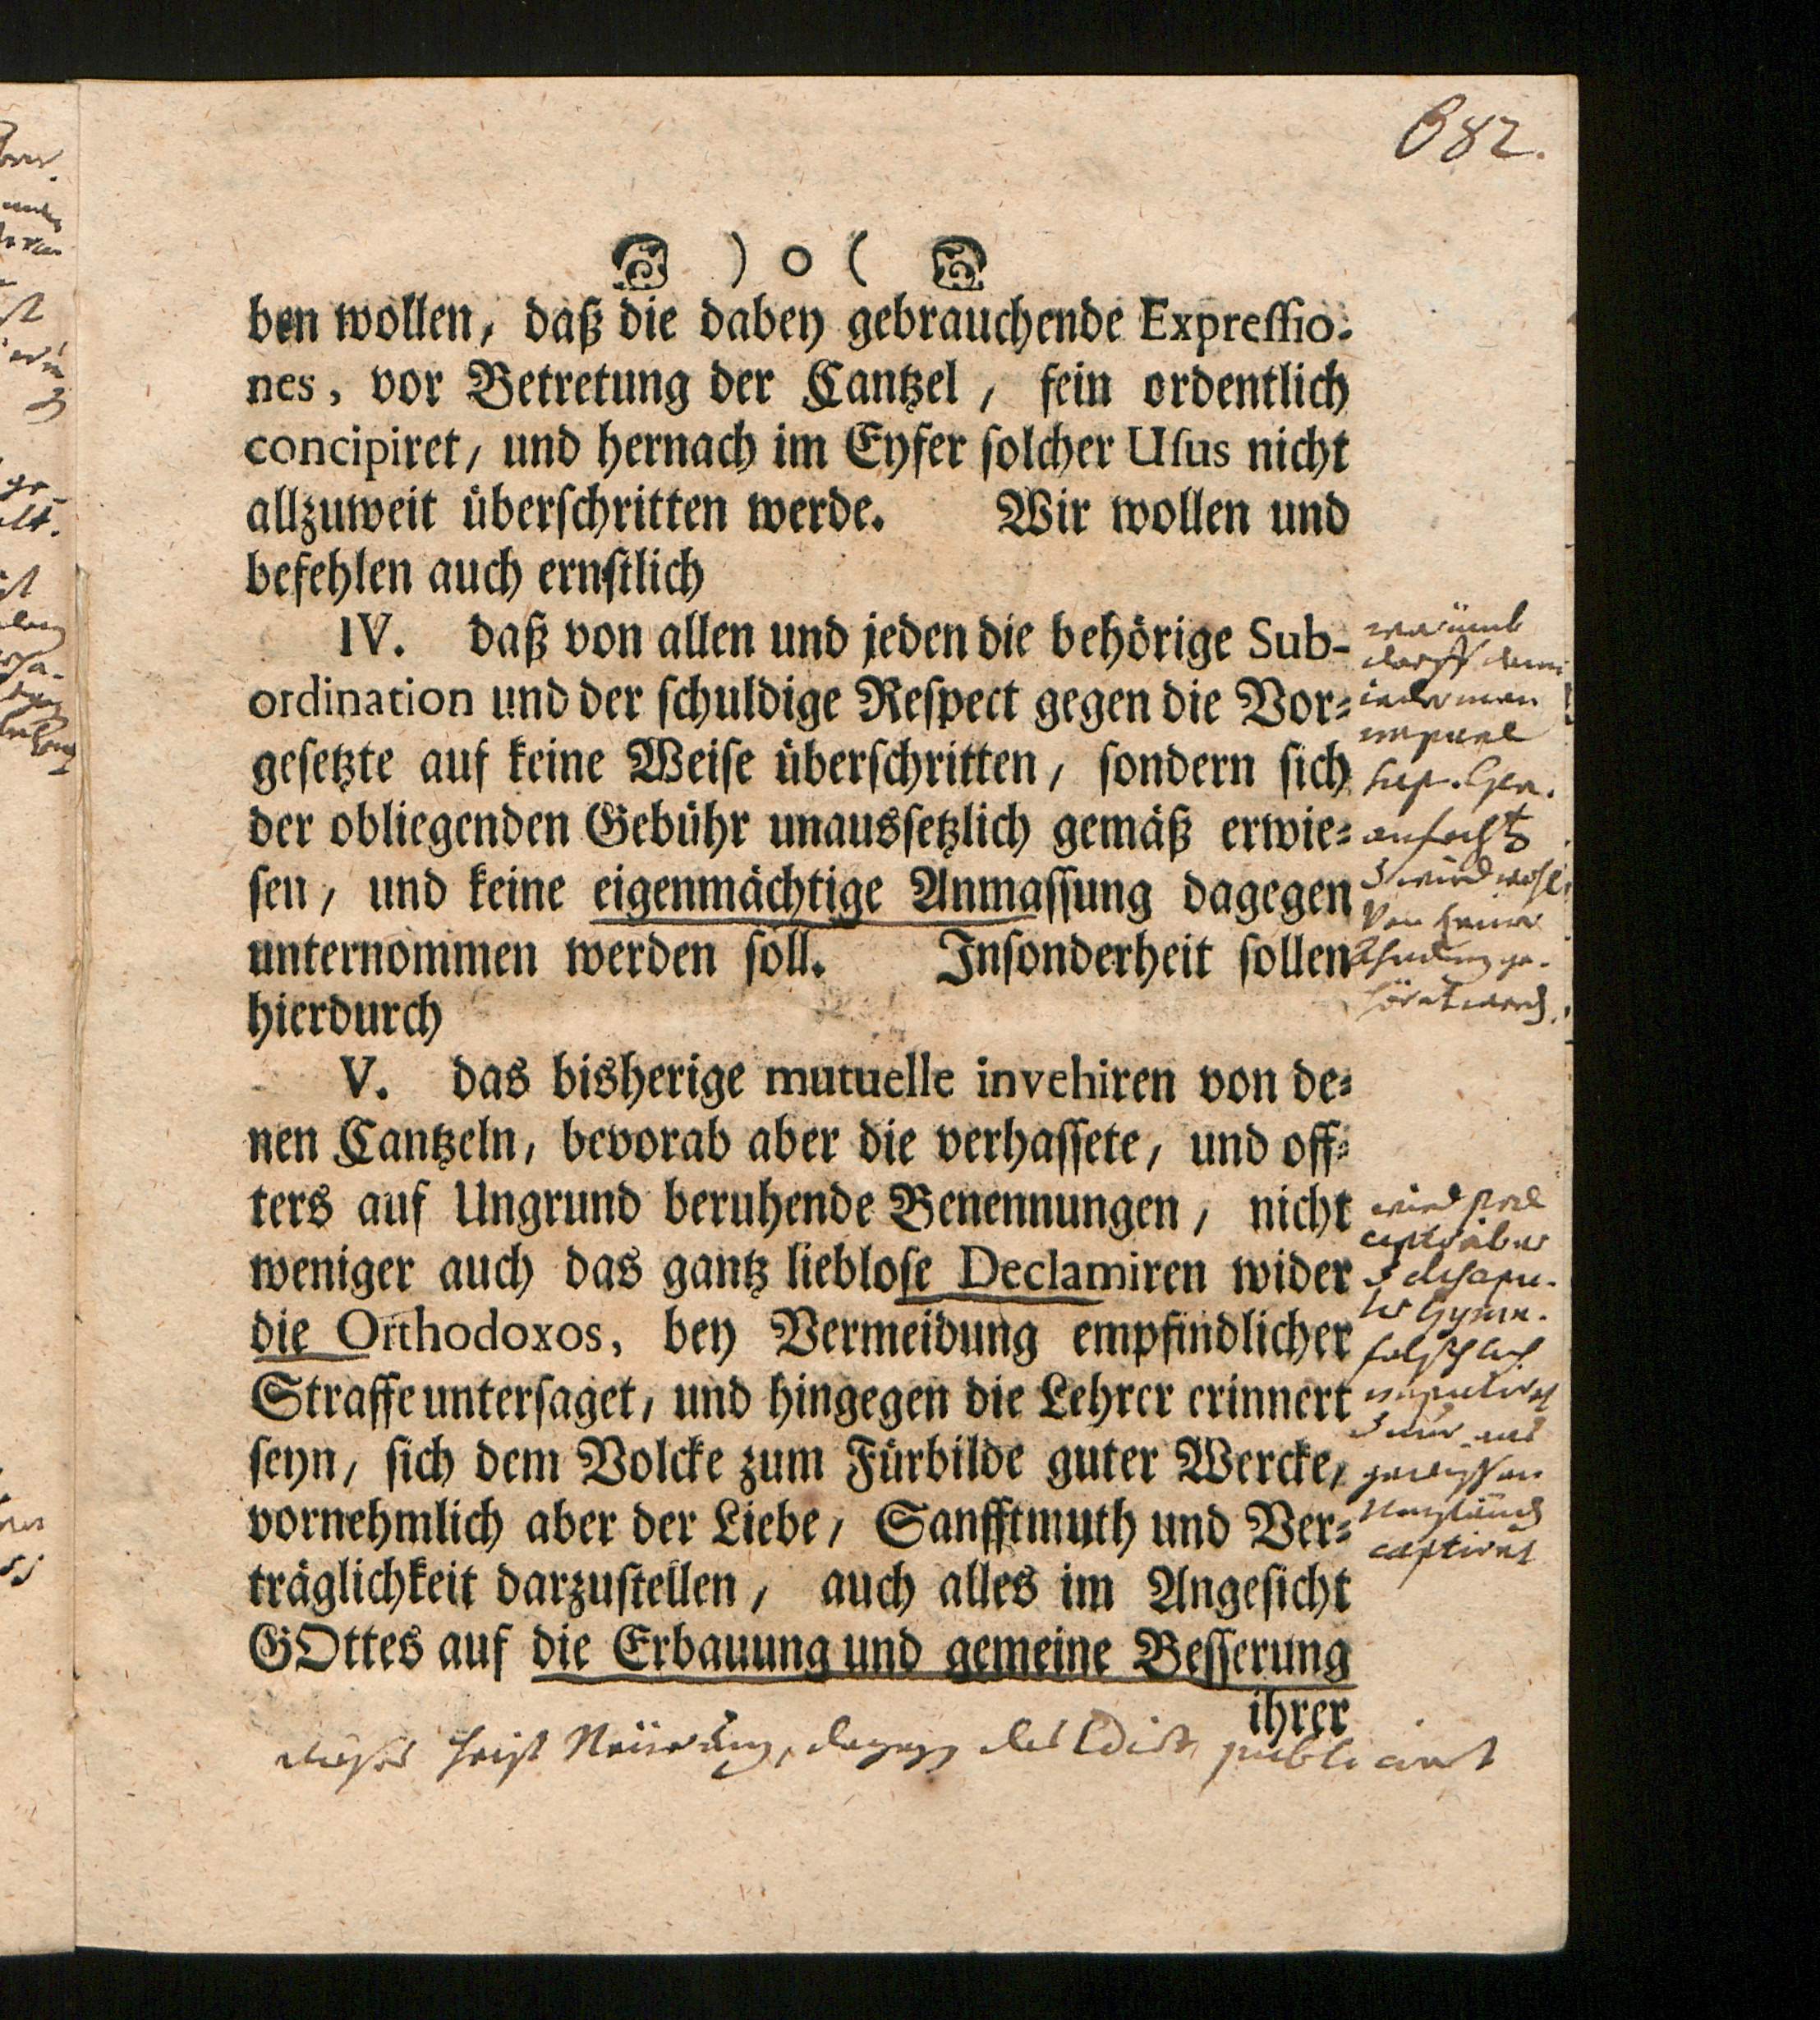 682.
) o (
ben wollen, daß die dabey gebrauchende Expressio-
nes, vor Betretung der Cantzel, fein ordentlich
concipiret, und hernach im Eyfer solcher Usus nicht
allzuweit überschritten werde. Wir wollen und
befehlen auch ernstlich
IV. daß von allen und jeden die behörige Sub-
ordination und der schuldige Respect gegen die Vor-
gesetzte auf keine Weise überschritten, sondern sich
der obliegenden Gebühr unaussetzlich gemäß erwie-
sen, und keine eigenmächtige Anmassung dagegen
unternommen werden soll. Insonderheit sollen
hierdurch
V. das bisherige mutuelle invehiren von de-
nen Cantzeln, bevorab aber die verhassete, und off-
ters auf Ungrund beruhende Benennungen, nicht
weniger auch das gantz lieblose Declamiren wider
die Orthodoxos, bey Vermeidung empfindlicher
Straffe untersaget, und hingegen die Lehrer erinnert
seyn, sich dem Volcke zum Fürbilde guter Wercke,
vornehmlich aber der Liebe, Sanfftmuth und Ver-
träglichkeit darzustellen, auch alles im Angesicht
GOttes auf die Erbauung und gemeine Besserung
ihrer
warumb
darff denn
iederman
Sup. Gen.
wird wohl
von keiner
wird
Gymn.
captivirt
heist Neuerung, das Edict publicirt